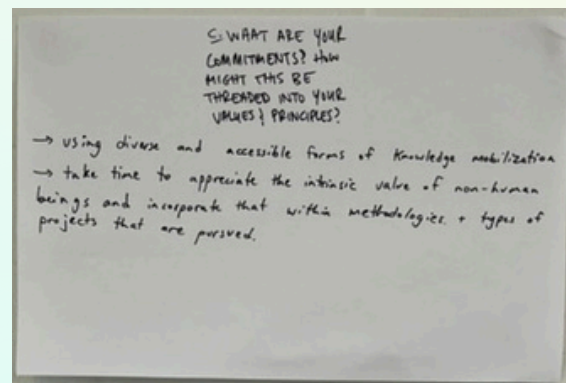 C: WHAT ARE YOUR
COMMITMENTS? HOW
MIGHT THIS BE
THREADED INTO YOUR
VALUES & PRINCIPLES?
→ using diverse and accessible forms of knowledge mobilization
→ take time to appreciate the intrinsic value of non-human
beings and incorporate that within methodologies. + types of
projects that are pursued.